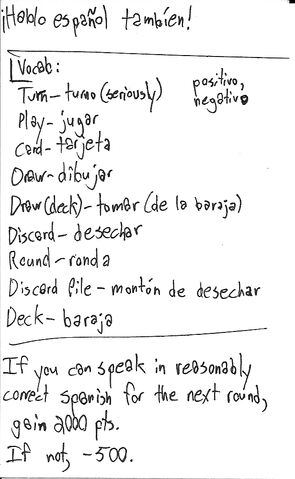 ¡Hablo español también!
Vocab:
Turn – turno (seriously)
positivo,
negativo
Play – jugar
Card – tarjeta
Draw – dibujar
Draw (deck) – tomar (de la baraja)
Discard – desechar
Round – ronda
Discard pile – montón de desechar
Deck – baraja
If you can speak in reasonably
correct spanish for the next round,
gain 2000 pts.
If not, -500.